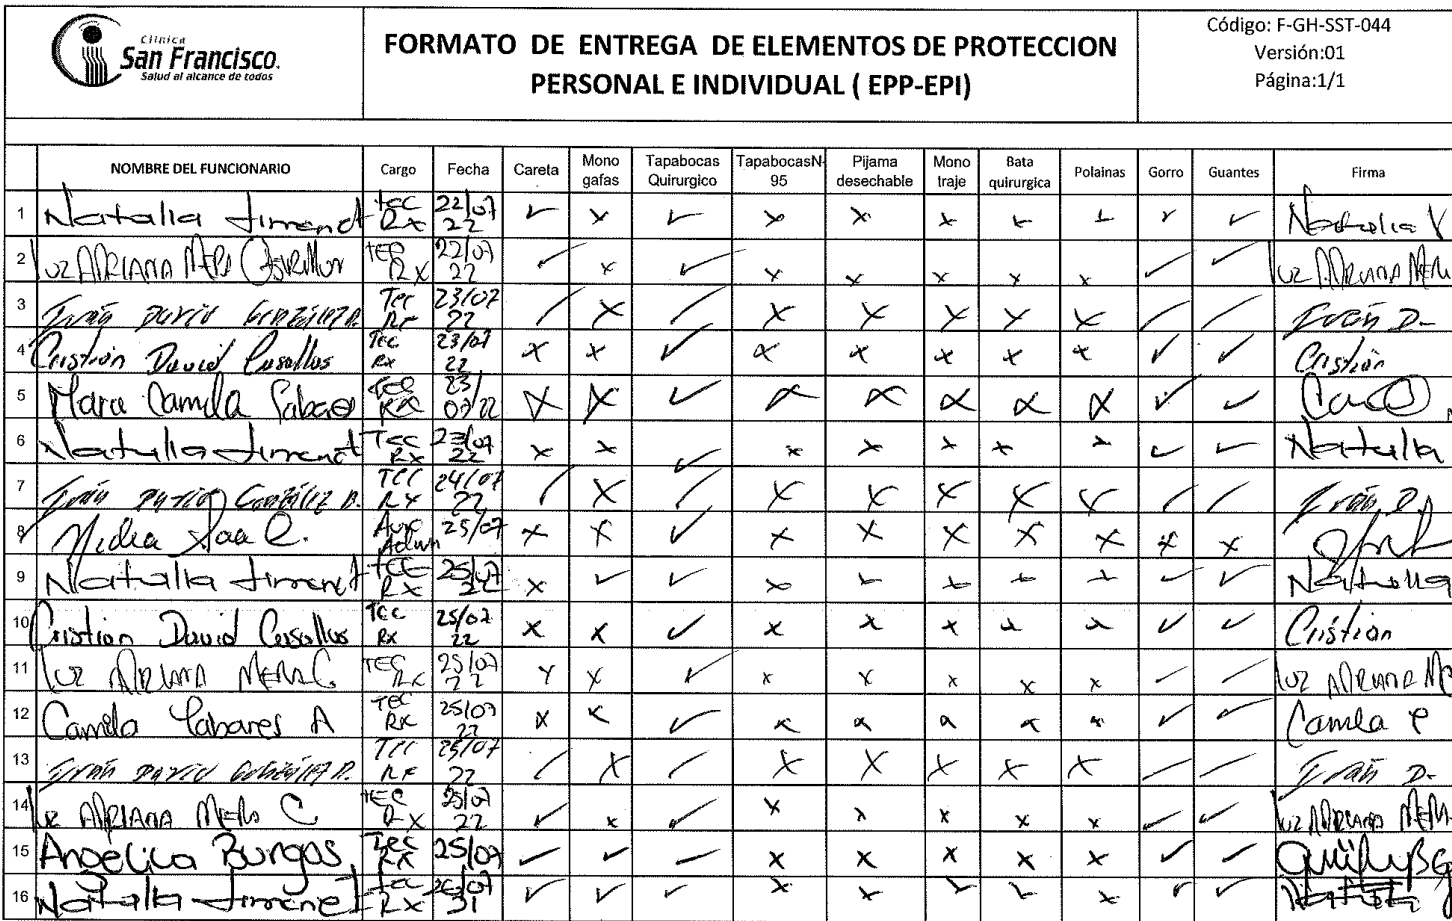 Clínica
San Francisco.
Salud al alcance de todos
FORMATO DE ENTREGA DE ELEMENTOS DE PROTECCION
PERSONAL E INDIVIDUAL ( EPP-EPI)
Código: F-GH-SST-044
Versión:01
Página:1/1
NOMBRE DEL FUNCIONARIO Cargo Fecha Careta Mono gafas Tapabocas Quirurgico TapabocasN-95 Pijama desechable Mono traje Bata quirurgica Polainas Gorro Guantes Firma
1 Natalia Jimenez Tec Rx 22/07 22 ✓ x ✓ x x x ✓ ✓ ✓ ✓ Natalia
2 Luz Adriana Melo Tec Rx 22/07 22 ✓ x ✓ x x x x x ✓ ✓ Luz Adriana Melo
3 Iván David González B. Tec Rx 23/07 22 ✓ x ✓ x x x x x ✓ ✓ Iván D-
4 Cristian David Casallas Tec Rx 23/07 22 x x ✓ x x x x x ✓ ✓ Cristian
5 Camila Tec Rx 23/07/22 x x ✓ x x x x x ✓ ✓
6 Natalia Jimenez Tec Rx 23/07 22 x x ✓ x x x x x ✓ ✓ Natalia
7 Iván David González B. Tec Rx 24/07 22 ✓ x ✓ x x x x x ✓ ✓ Iván D.
8 Aux Admn 25/07 x x ✓ x x x x x x x
9 Natalia Jimenez Tec Rx 25/07 22 x ✓ ✓ x ✓ x x x ✓ ✓ Natalia
10 Cristian David Casallas Tec Rx 25/07 22 x x ✓ x x x x x ✓ ✓ Cristian
11 Luz Adriana Melo C Tec Rx 25/07 22 x x ✓ x x x x x ✓ ✓ Luz Adriana M
12 Camila Tabares A Tec Rx 25/07 22 x x ✓ x x x x x ✓ ✓ Camila
13 Iván David González B. Tec Rx 25/07 22 ✓ x ✓ x x x x x ✓ ✓ Iván D-
14 Luz Adriana Melo C Tec Rx 25/07 22 ✓ x ✓ x x x x x ✓ ✓ Luz Adriana Melo
15 Angelica Burgos Tec Rx 25/07 ✓ ✓ ✓ x x x x x ✓ ✓
16 Natalia Jimenez Tec Rx 26/07 ✓ ✓ ✓ x x ✓ ✓ x ✓ ✓